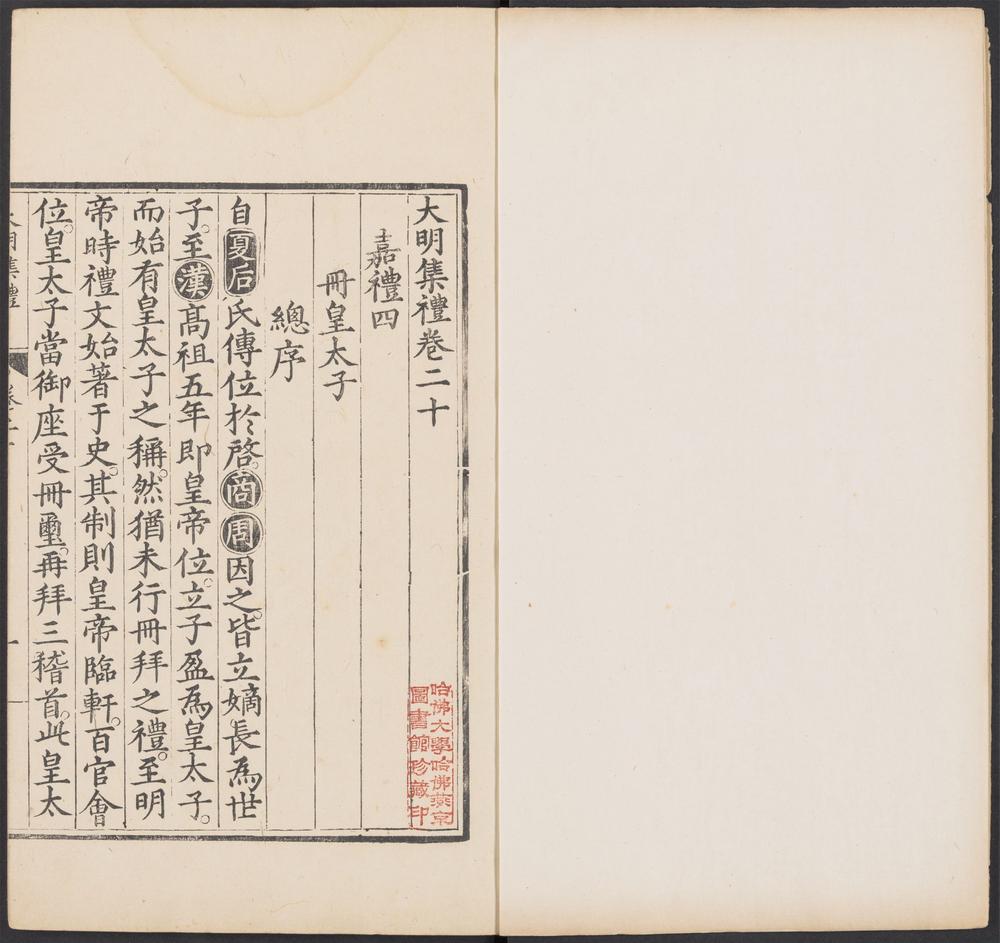 大明集禮卷二十
嘉禮四
冊皇太子
總序
自夏后氏傳位於啓。商周因之。皆立嫡長為世
子。至漢高祖五年即皇帝位。立子盈為皇太子。
而始有皇太子之稱。然猶未行冊拜之禮。至明
帝時禮文始著于史。其制則皇帝臨軒。百官會
位。皇太子當御座受冊璽。再拜三稽首。此皇太
大明集禮
卷二十
一
哈佛大學哈佛燕京
圖書館珍藏印